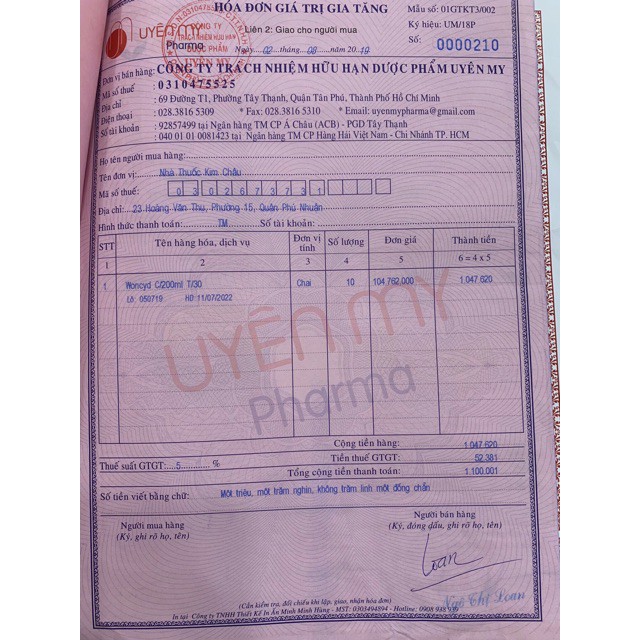 HÓA ĐƠN GIÁ TRỊ GIA TĂNG
Liên 2: Giao cho người mua
Ngày 02 tháng 08 năm 2019
Mẫu số: 01GTKT3/002
Ký hiệu: UM/18P
Số: 0000210
UYÊN MY
Pharma
CÔNG TY
TRÁCH NHIỆM HỮU HẠN
DƯỢC PHẨM
UYÊN MY
Đơn vị bán hàng: CÔNG TY TRÁCH NHIỆM HỮU HẠN DƯỢC PHẨM UYÊN MY
Mã số thuế : 0310475525
Địa chỉ : 69 Đường T1, Phường Tây Thạnh, Quận Tân Phú, Thành Phố Hồ Chí Minh
Điện thoại : 028.3816 5309 * Fax: 028.3816 5310 * Email: uyenmypharma@gmail.com
Số tài khoản : 92857499 tại Ngân hàng TM CP Á Châu (ACB) - PGD Tây Thạnh
: 040 01 01 0081423 tại Ngân hàng TM CP Hàng Hải Việt Nam - Chi Nhánh TP. HCM
Họ tên người mua hàng:
Tên đơn vị: Nhà Thuốc Kim Châu
Mã số thuế: 0302677731
Địa chỉ: 23 Hoàng Văn Thụ, Phường 15, Quận Phú Nhuận
Hình thức thanh toán: TM Số tài khoản:
STT Tên hàng hóa, dịch vụ Đơn vị tính Số lượng Đơn giá Thành tiền
1 2 3 4 5 6 = 4 x 5
1 Woncyd C/200ml T/30 Chai 10 104 762.000 1 047 620
Lô: 050719 HD: 11/07/2022
UYÊN MY
Pharma
Cộng tiền hàng: 1 047 620
Thuế suất GTGT: 5 % Tiền thuế GTGT: 52.381
Tổng cộng tiền thanh toán: 1.100.001
Số tiền viết bằng chữ: Một triệu, một trăm nghìn, không trăm linh một đồng chẵn
Người mua hàng Người bán hàng
(Ký, ghi rõ họ, tên) (Ký, đóng dấu, ghi rõ họ, tên)
Loan
Ngô Thị Loan
(Cần kiểm tra, đối chiếu khi lập, giao, nhận hóa đơn)
In tại Công ty TNHH Thiết Kế In Ấn Minh Minh Hùng - MST: 0303494894 - Hotline: 0908 938 939